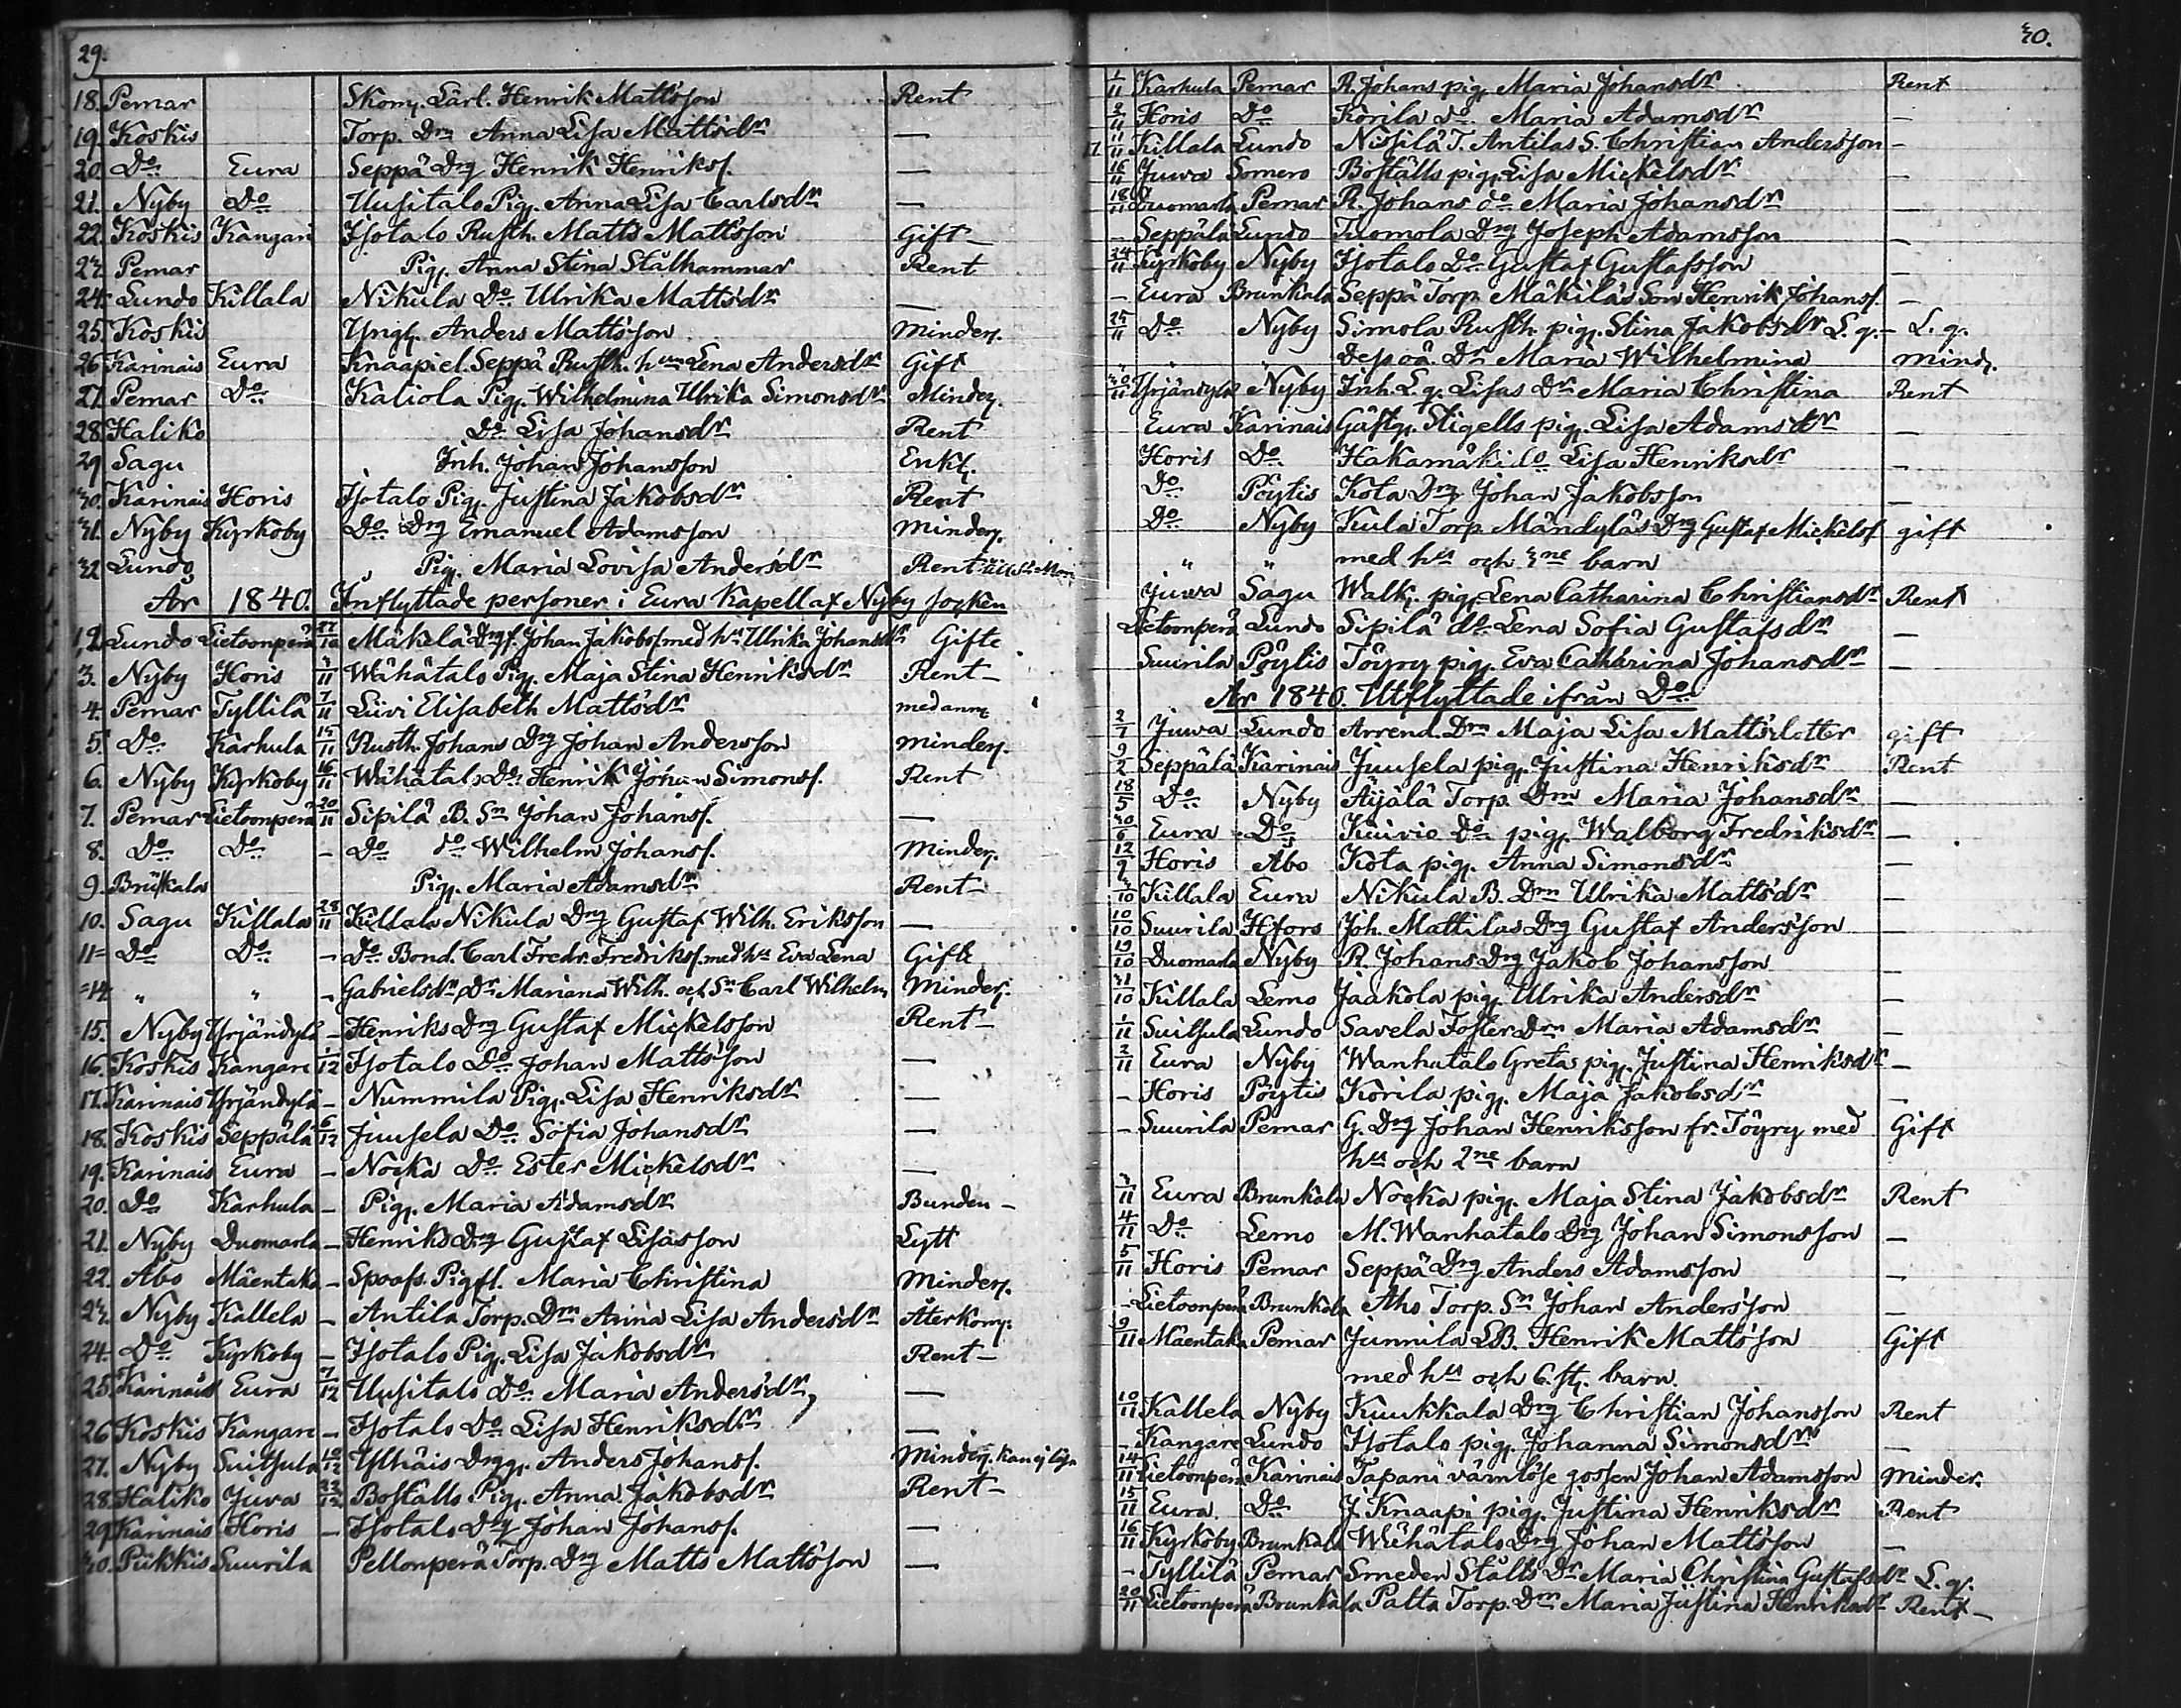 29.
18. Pemar Skom. Lärl. Henrik Mattsson Rent
19. Koskis Torp. Drn Anna Lisa Mattsdr —
20. Do Eura Seppä Drg Henrik Henrikss. —
21. Nyby Do Uusitalo Pig. Anna Lisa Carlsdr —
22. Koskis Kangare Isotalo Rusth. Matts Mattsson Gift —
23. Pemar Pig. Anna Stina Stålhammar Rent
24. Lundo Killala Nikula Do Ulrika Mattsdr —
25. Koskis Yngl. Anders Mattsson Minderg.
26 Karinais Eura Knaapi el. Seppä Rusth. hu Lena Andersdr Gift
27. Pemar Do Kaliola Pig. Wilhelmina Ulrika Simonsdr Minderg.
28. Haliko Do Lisa Johansdr Rent
29 Sagu Inh. Johan Johansson Enkl.
30. Karinais Horis Isotalo Pig. Justina Jakobsdr Rent
31. Nyby Kyrkoby Do Drg Emanuel Adamsson Minderg.
32 Lundo Pig. Maria Lovisa Andersdr Rent
År 1840. Inflyttade personer i Eura Kapell af Nyby socken
1,2. Lundo Lietoonperä 27/10 Mäkelä Drg f. Johan Jakobss. med hu Ulrika Johansdr Gifte
3. Nyby Horis 3/11 Wähätalo Pig. Maja Stina Henriksdr Rent —
4. Pemar Tyllilä 7/11 Liivi Elisabeth Mattsdr med anm
5. Do Karhula 15/11 Rusth. Johans Drg Johan Andersson Minderg.
6. Nyby Kyrkoby 16/11 Wähätalo Do Henrik Johan Simonss. Rent
7. Pemar Lietoonperä 20/11 Sipilä B. Sn Johan Johanss. —
8. Do Do — Do do Wilhelm Johanss. Minderg.
9. Brunkala Pig. Maria Adamsdr Rent —
10. Sagu Killala 28/11 Killala Nikula Drg Gustaf Wilh. Eriksson —
11= Do Do — Do Bond. Carl Fredr. Fredrikss. med hu Eva Lena Gifte
=14. „ „ — Gabrielsdr, Dr Mariana Wilh. och Sn Carl Wilhelm Minderg.
15. Nyby Yrjändylä — Henriks Drg Gustaf Mickelsson Rent —
16. Koskis Kangare 1/12 Isotalo Do Johan Mattsson —
17. Karinais Yrjändylä — Nummila Pig. Lisa Henriksdr —
18. Koskis Seppälä 6/12 Juusela Do Sofia Johansdr —
19. Karinais Eura — Nocka Do Ester Mickelsdr —
20. Do Karhula — Pig. Maria Adamsdr Bunden —
21. Nyby Duomarla — Henriks Drg Gustaf Lisasson Lytt
22. Åbo Mäentaka — Maria Christina Minderg.
23. Nyby Kallela — Antila Torp. Drn Anna Lisa Andersdr Återkom.
24. Do Kyrkoby — Isotalo Pig. Lisa Jakobsdr Rent —
25. Karinais Eura 7/12 Uusitalo Do Maria Andersdr —
26 Koskis Kangare — Isotalo Do Lisa Henriksdr —
27. Nyby Suitsula 10/12 Ylhäis Drgg. Anders Johanss. Minderg. kan ej läsa
28. Haliko Juva 22/12 Boställs Pig. Anna Jakobsdr Rent —
29 Karinais Horis — Isotalo Drg Johan Johanss. —
30. Piikkis Suurila Pellonperä Torp. Drg Matts Mattsson —
30.
1/11 Karhula Pemar R. Johans pig. Maria Johansdr Rent
2/11 Horis Do Korila do Maria Adamsdr —
11/11 Killala Lundo Nissilä T. Antilas S. Christian Andersson —
16/11 Juwa Somero Boställs pig. Lisa Mickelsdr —
18/11 Duomarla Pemar R. Johans do Maria Johansdr —
— Seppälä Lundo Tuomola Drg Joseph Adamsson —
24/11 Kyrkoby Nyby Isotalo Do Gustaf Gustafsson —
— Eura Brunkala Seppä Torp. Mäkiläs Son Henrik Johanss. —
25/11 Do Nyby Simola Rusth. pig. Stina Jakobsdr L. q. — L. q.
„ „ Dess oä. Dr Maria Wilhelmina Mind.
30/11 Yrjändylä Nyby Inh. L. q. Lisas Dr Maria Christina Rent
Eura Karinais Gästg. Stigells pig. Lisa Adamsdr —
Horis Do Hakamäki do Lisa Henriksdr —
Do Pöytis Kota Drg Johan Jakobsson —
Do Nyby Kula Torp. Mändyläs Drg Gustaf Mickelss. gift
„ „ med hu och 3ne barn
Juwa Sagu Walk. pig. Lena Catharina Christiansdr Rent
Lietoonperä Lundo Sipilä do Lena Sofia Gustafsdr —
Suurila Pöytis Töyry pig. Eva Catharina Johansdr —
År 1840. Utflyttade ifrån Do
2/1 Juwa Lundo Arrend. Drn Maja Lisa Mattsdotter gift
9/2 Seppälä Karinais Juusela pig. Justina Henriksdr Rent
18/5 Do Nyby Äijälä Torp. Drn Maria Johansdr —
30/6 Eura Do Kuivio Do pig. Walborg Fredriksdr —
12/9 Horis Åbo Kota pig. Anna Simonsdr —
3/10 Killala Eura Nikula B. Drn Ulrika Mattsdr —
10/10 Suurila Hfors Joh. Mattilas Drg Gustaf Andersson —
19/10 Duomarla Nyby R. Johans Drg Jakob Johansson —
31/10 Killala Lemo Jaakola pig. Ulrika Andersdr —
1/11 Suitsula Lundo Savela Foster Drn Maria Adamsdr —
2/11 Eura Nyby Wanhatalo Gretas pig. Justina Henriksdr —
— Horis Pöytis Korila pig. Maja Jakobsdr —
— Suurila Pemar G. Drg Johan Henriksson fr. Töyry med Gift
hu och 2ne barn
3/11 Eura Brunkala Nocka pig. Maja Stina Jakobsdr Rent
4/11 Do Lemo M. Wanhatalo Drg Johan Simonsson —
5/11 Horis Pemar Seppä Drg Anders Adamsson —
— Lietoonperä Brunkala Aho Torp. Sn Johan Andersson —
9/11 Mäentaka Pemar Junnila LB. Henrik Mattsson Gift
med hu och 6. st. barn.
10/11 Kallela Nyby Kuukkala Drg Christian Johansson Rent
— Kangare Lundo Isotalo pig. Johanna Simonsdr —
14/11 Lietoonperä Karinais Tapani värnlöse gossen Johan Adamsson Minder.
15/11 Eura Do J. Knaapi pig. Justina Henriksdr Rent
16/11 Kyrkoby Brunkala Wähätalo Drg Johan Mattsson —
— Tyllilä Pemar Smeden Stålts Dr Maria Christina Gustafsdr L. q.
20/11 Lietoonperä Brunkala Palta Torp. Drn Maria Justina Henriksdr Rent —